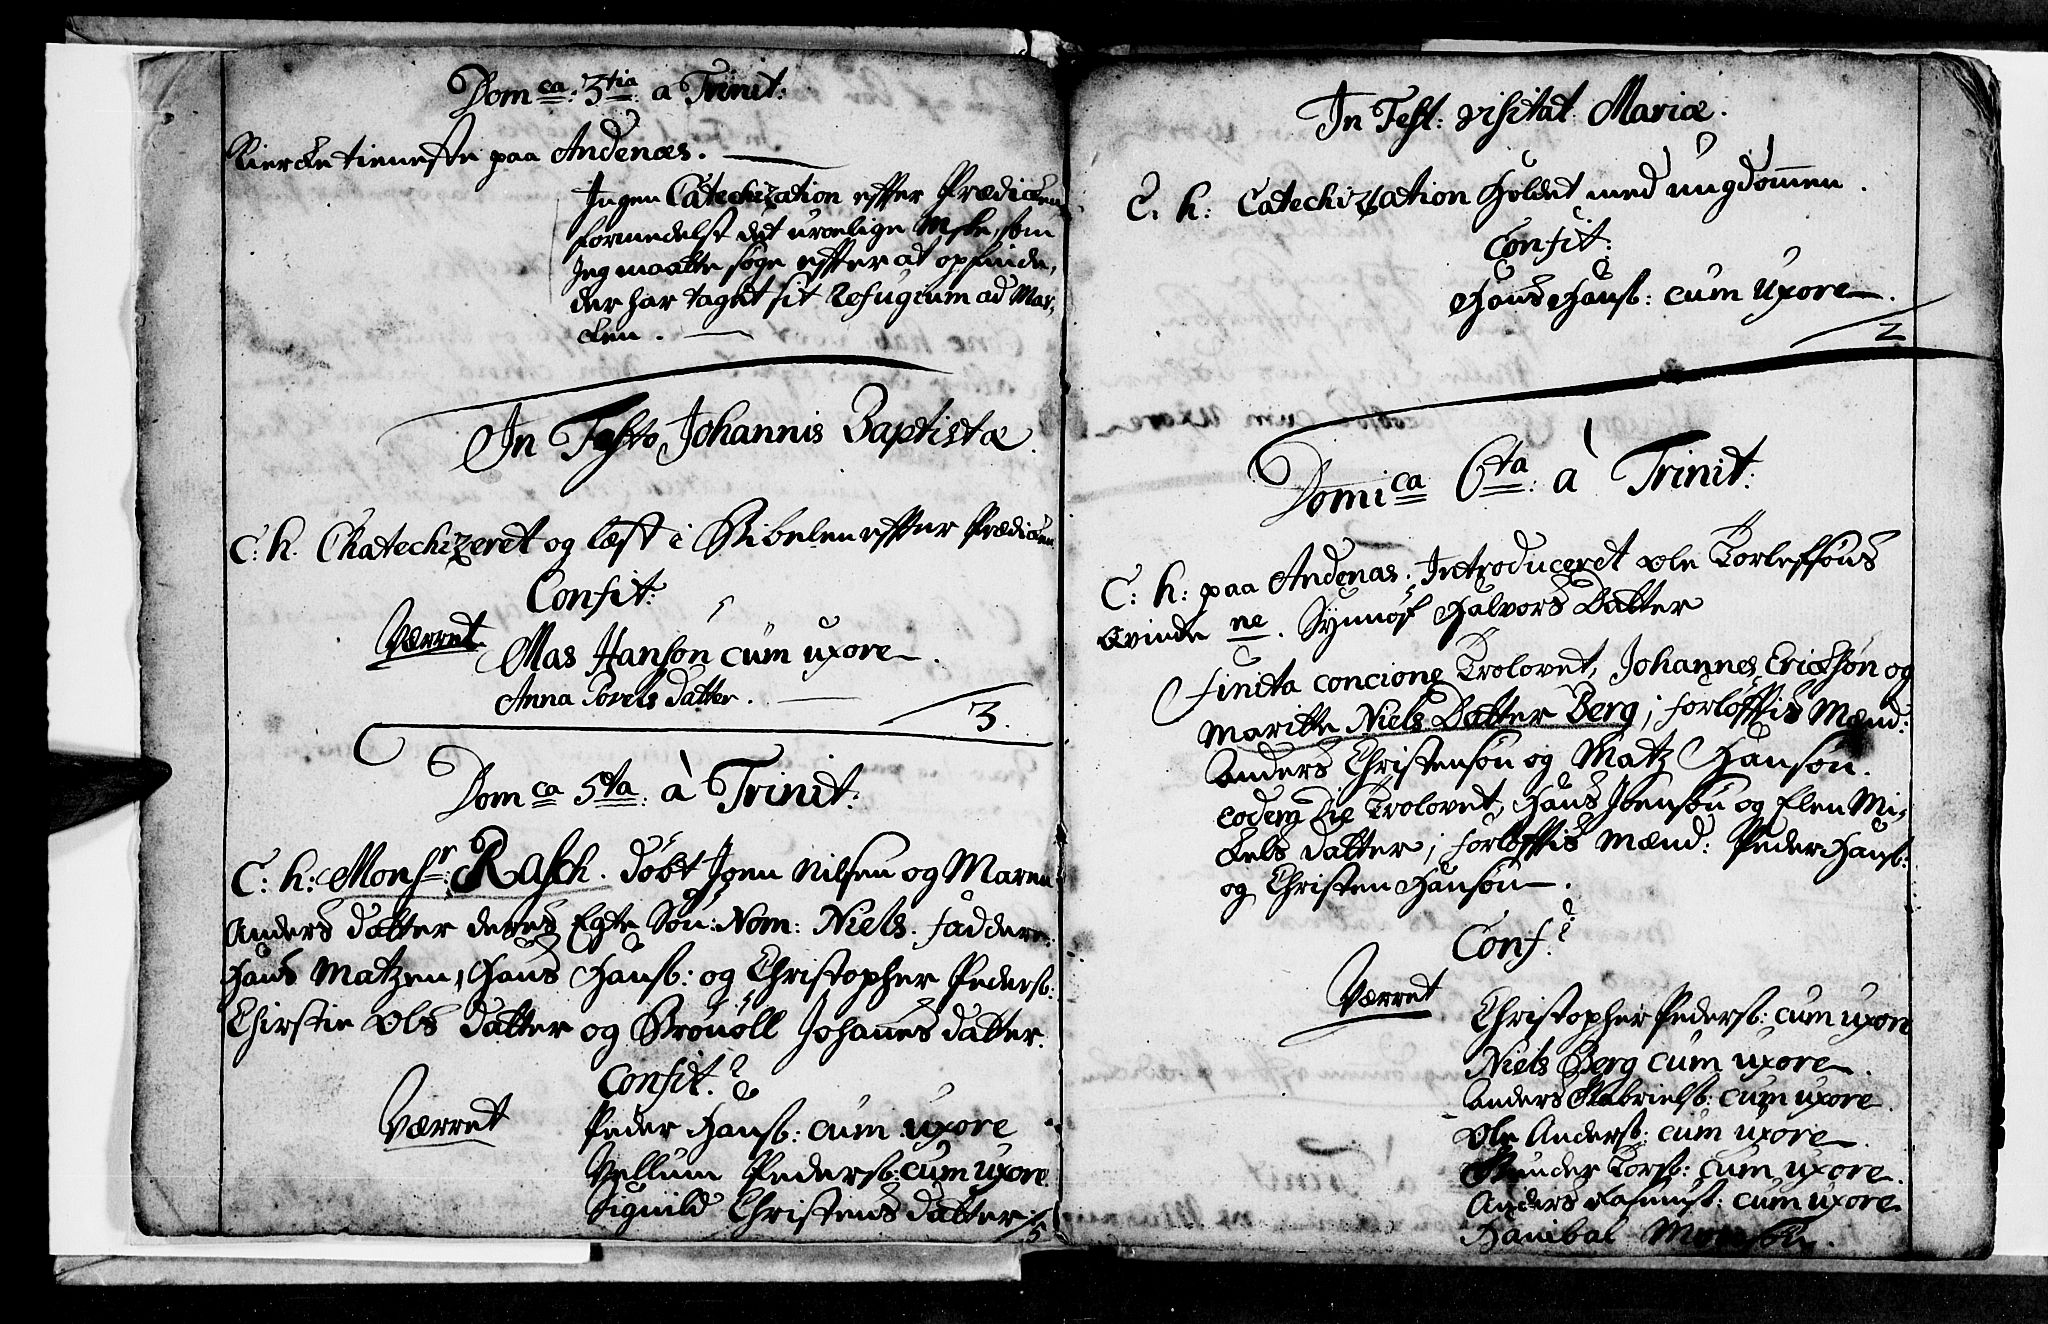 Dom<u>ca</u>: 3<u>tia</u>: a Trinit:
Kierketieneste paa Andenæs.
Ingen Catechization efter Prædicken
formedelst det uroelige Mske, som
Jeg maatte søge efter at opfinde,
der har taget sit Refugium ad Mar-
ken.
In Festo Johannis Baptistæ.
C: h. Chatechizeret og læst i Bibelen efter Prædicken
Confit:
Værret Mas Hansøn cum uxore.
Anna Povels datter.
3.
Domca 5ta: à Trinit:
C: h: Monsr: Rasch. døbt Joen Nilsen og Maren
Anders datter deres Egte Søn: Nom: Niels. Faddere:
Hans Matzen, Hans Hansß: og Christopher Pedersß:
Chirstie Ols datter og Brönöll Johannes datter.
Confit:
Værret Peder Hansß: cum uxore
Vellum Pedersß: cum uxore
Signild Christens datter. 5
In Fest: visitat: Mariæ.
C. h: Catechization holdet med ungdommen.
Confit:
Hans Hansß: cum Uxore.
2
Domica 6ta: à Trinit:
C: h: paa Andenæs. Introduceret Ole Torlefsøns
Qvinde ne. Synnøf Halvors Datter
Finita concione Trolovet, Johannes Ericksøn og
Maritte Niels Datter Berg; forløfftis Mænd:
Anders Christensøn og Matz Hansøn.
eodem Die Trolovet, Hans Joensøn og Elen Mi-
kels datter; forløfftis Mænd: Peder Hansß:
og Christen Hansøn.
Conf:
Værret Christopher Pedersß: cum uxore
Niels Berg cum uxore.
Anders Gabrielsß: cum uxore.
Ole Andersß: cum uxore.
Gunder Torsß: cum uxore.
Anders Rasmusß: cum uxore
Hanibal